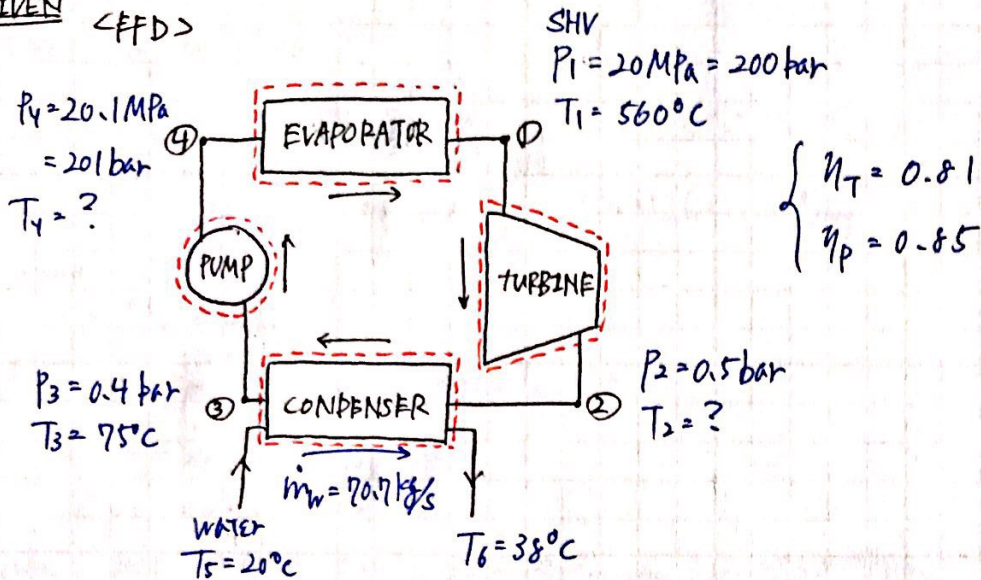 GIVEN
<EFD>
SHV
P1 = 20MPa = 200 bar
T1 = 560°C
P4 = 20.1MPa
= 201 bar
T4 = ?
④
EVAPORATOR
①
ηT = 0.81
ηP = 0.85
PUMP
TURBINE
P3 = 0.4 bar
T3 = 75°C
③
CONDENSER
②
P2 = 0.5 bar
T2 = ?
ṁw = 70.7 kg/s
WATER
T5 = 20°C
T6 = 38°C